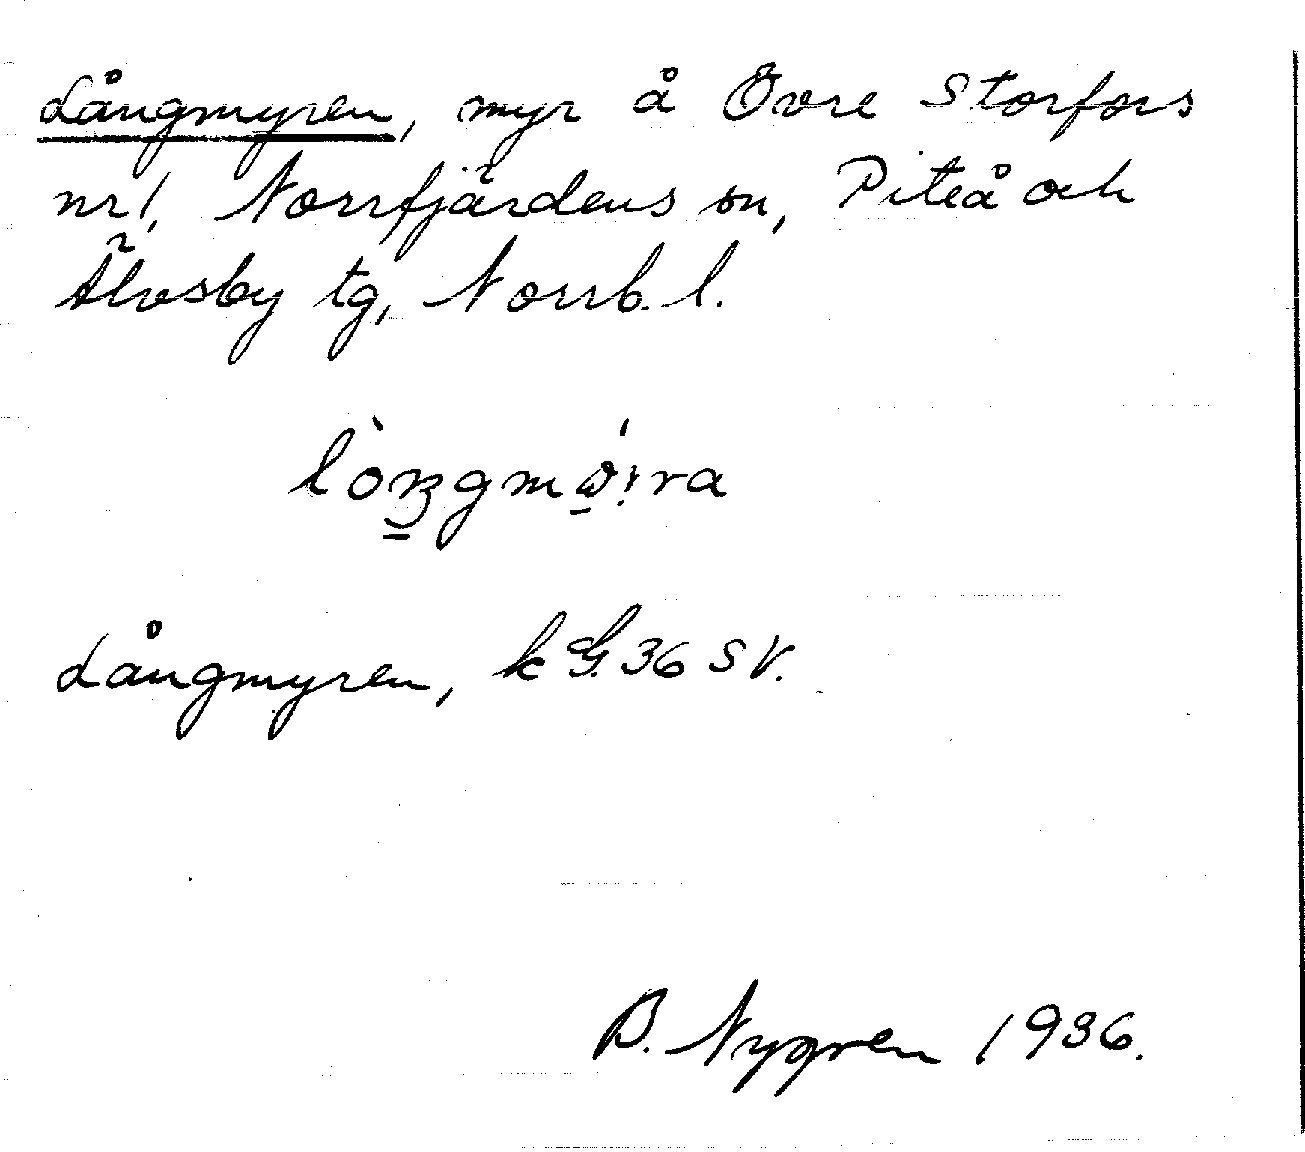 Långmyren, myr å Övre Storfors
nr 1, Norrfjärdens sn, Piteå och
Älvsby tg, Norrb. l.
Långmyren, k G. 36 SV.
B. Nygren 1936.